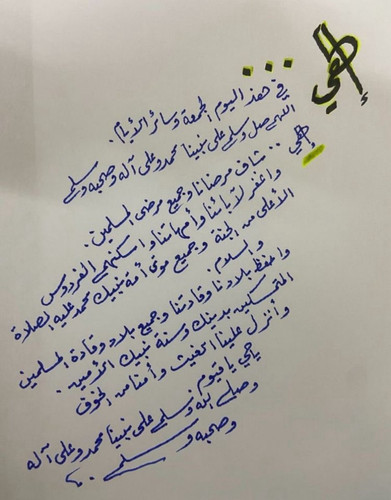 إلهي ...
في هذا اليوم الجمعة وسائر الأيام.
اللهم صل وسلم على نبينا محمد وعلى آله وصحبه وسلم
إلهي .. شاف مرضانا وجميع مرضى المسلمين.
واغفر لآبائنا وأمهاتنا واسكنهم الفردوس
الأعلى من الجنة وجميع موتى أمة نبيك محمد عليه الصلاة
والسلام.
واحفظ بلادنا وقادتنا وجميع بلاد وقادة المسلمين
المتمسكين بدينك وسنة نبيك الأمين.
وأنزل علينا الغيث وأمنا من الخوف
يا حي يا قيوم
وصلى الله وسلم على نبينا محمد وعلى آله
وصحبه وسلم